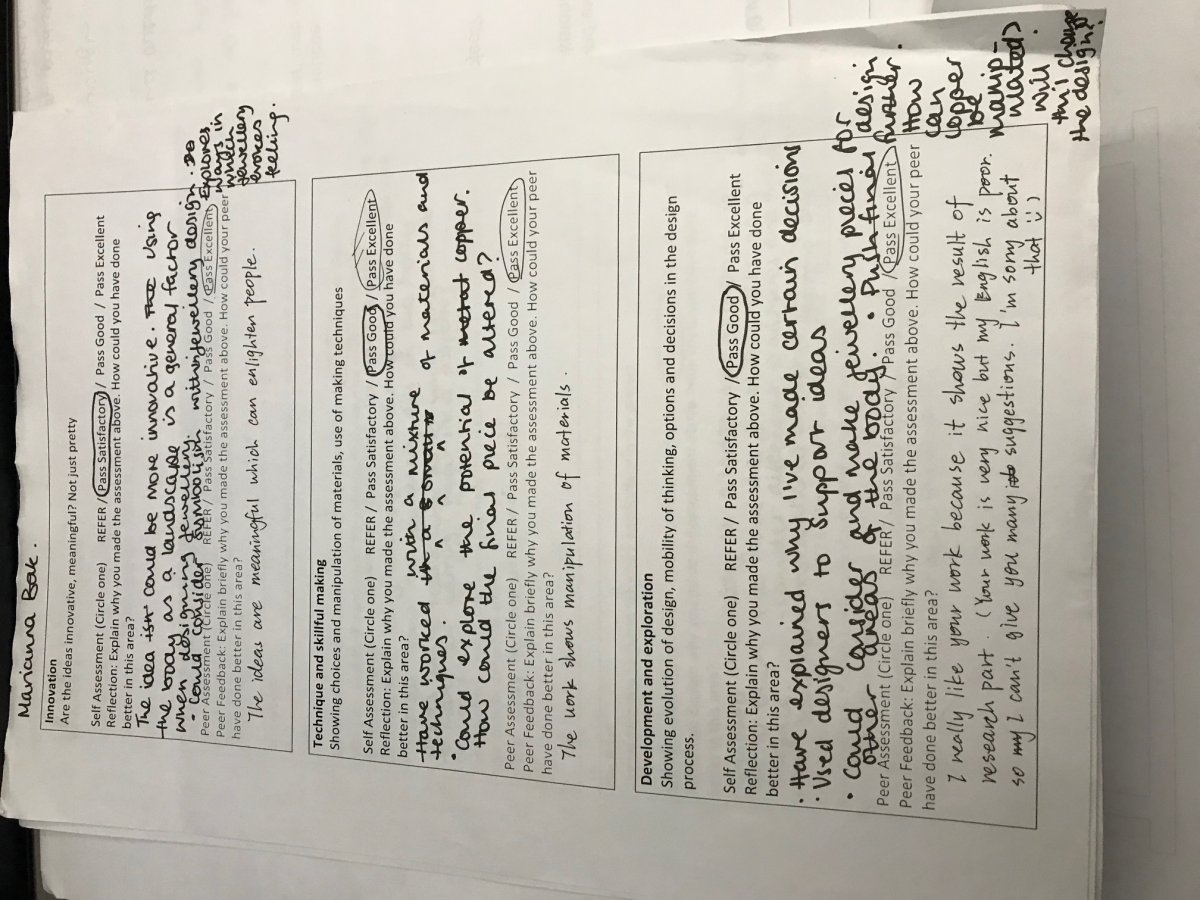 Marianna Bak.
Innovation
Are the ideas innovative, meaningful? Not just pretty
Self Assessment (Circle one) REFER / Pass Satisfactory / Pass Good / Pass Excellent
Reflection: Explain why you made the assessment above. How could you have done
better in this area?
The idea isn't could be more inovative. The Using
the body as a landscape is a general factor
when designing jewellery.
- Could consider symbolism within jewellery design. Explores
ways in
which
jewellery
evokes
feeling.
Peer Assessment (Circle one) REFER / Pass Satisfactory / Pass Good / Pass Excellent
Peer Feedback: Explain briefly why you made the assessment above. How could your peer
have done better in this area?
The ideas are meaningful which can enlighten people.
Technique and skillful making
Showing choices and manipulation of materials, use of making techniques
Self Assessment (Circle one) REFER / Pass Satisfactory / Pass Good / Pass Excellent
Reflection: Explain why you made the assessment above. How could you have done
better in this area?
Have worked with a mixture of materials and
techniques.
• Could explore the potential of metal copper.
How could the final piece be altered?
Peer Assessment (Circle one) REFER / Pass Satisfactory / Pass Good / Pass Excellent
Peer Feedback: Explain briefly why you made the assessment above. How could your peer
have done better in this area?
The work shows manipulation of materials.
Development and exploration
Showing evolution of design, mobility of thinking, options and decisions in the design
process.
Self Assessment (Circle one) REFER / Pass Satisfactory / Pass Good / Pass Excellent
Reflection: Explain why you made the assessment above. How could you have done
better in this area?
• Have explained why I've made certain decisions
• Used designers to support ideas
• Could consider and make jewellery pieces for
other areas of the body. • Push final design
further.
How
can
copper
be
manip-
ulated?
Will
this change
the design?
Peer Assessment (Circle one) REFER / Pass Satisfactory / Pass Good / Pass Excellent
Peer Feedback: Explain briefly why you made the assessment above. How could your peer
have done better in this area?
I really like your work because it shows the result of
research part (Your work is very nice but my English is poor.
so my I can't give you many suggestions. I'm sorry about
that :)